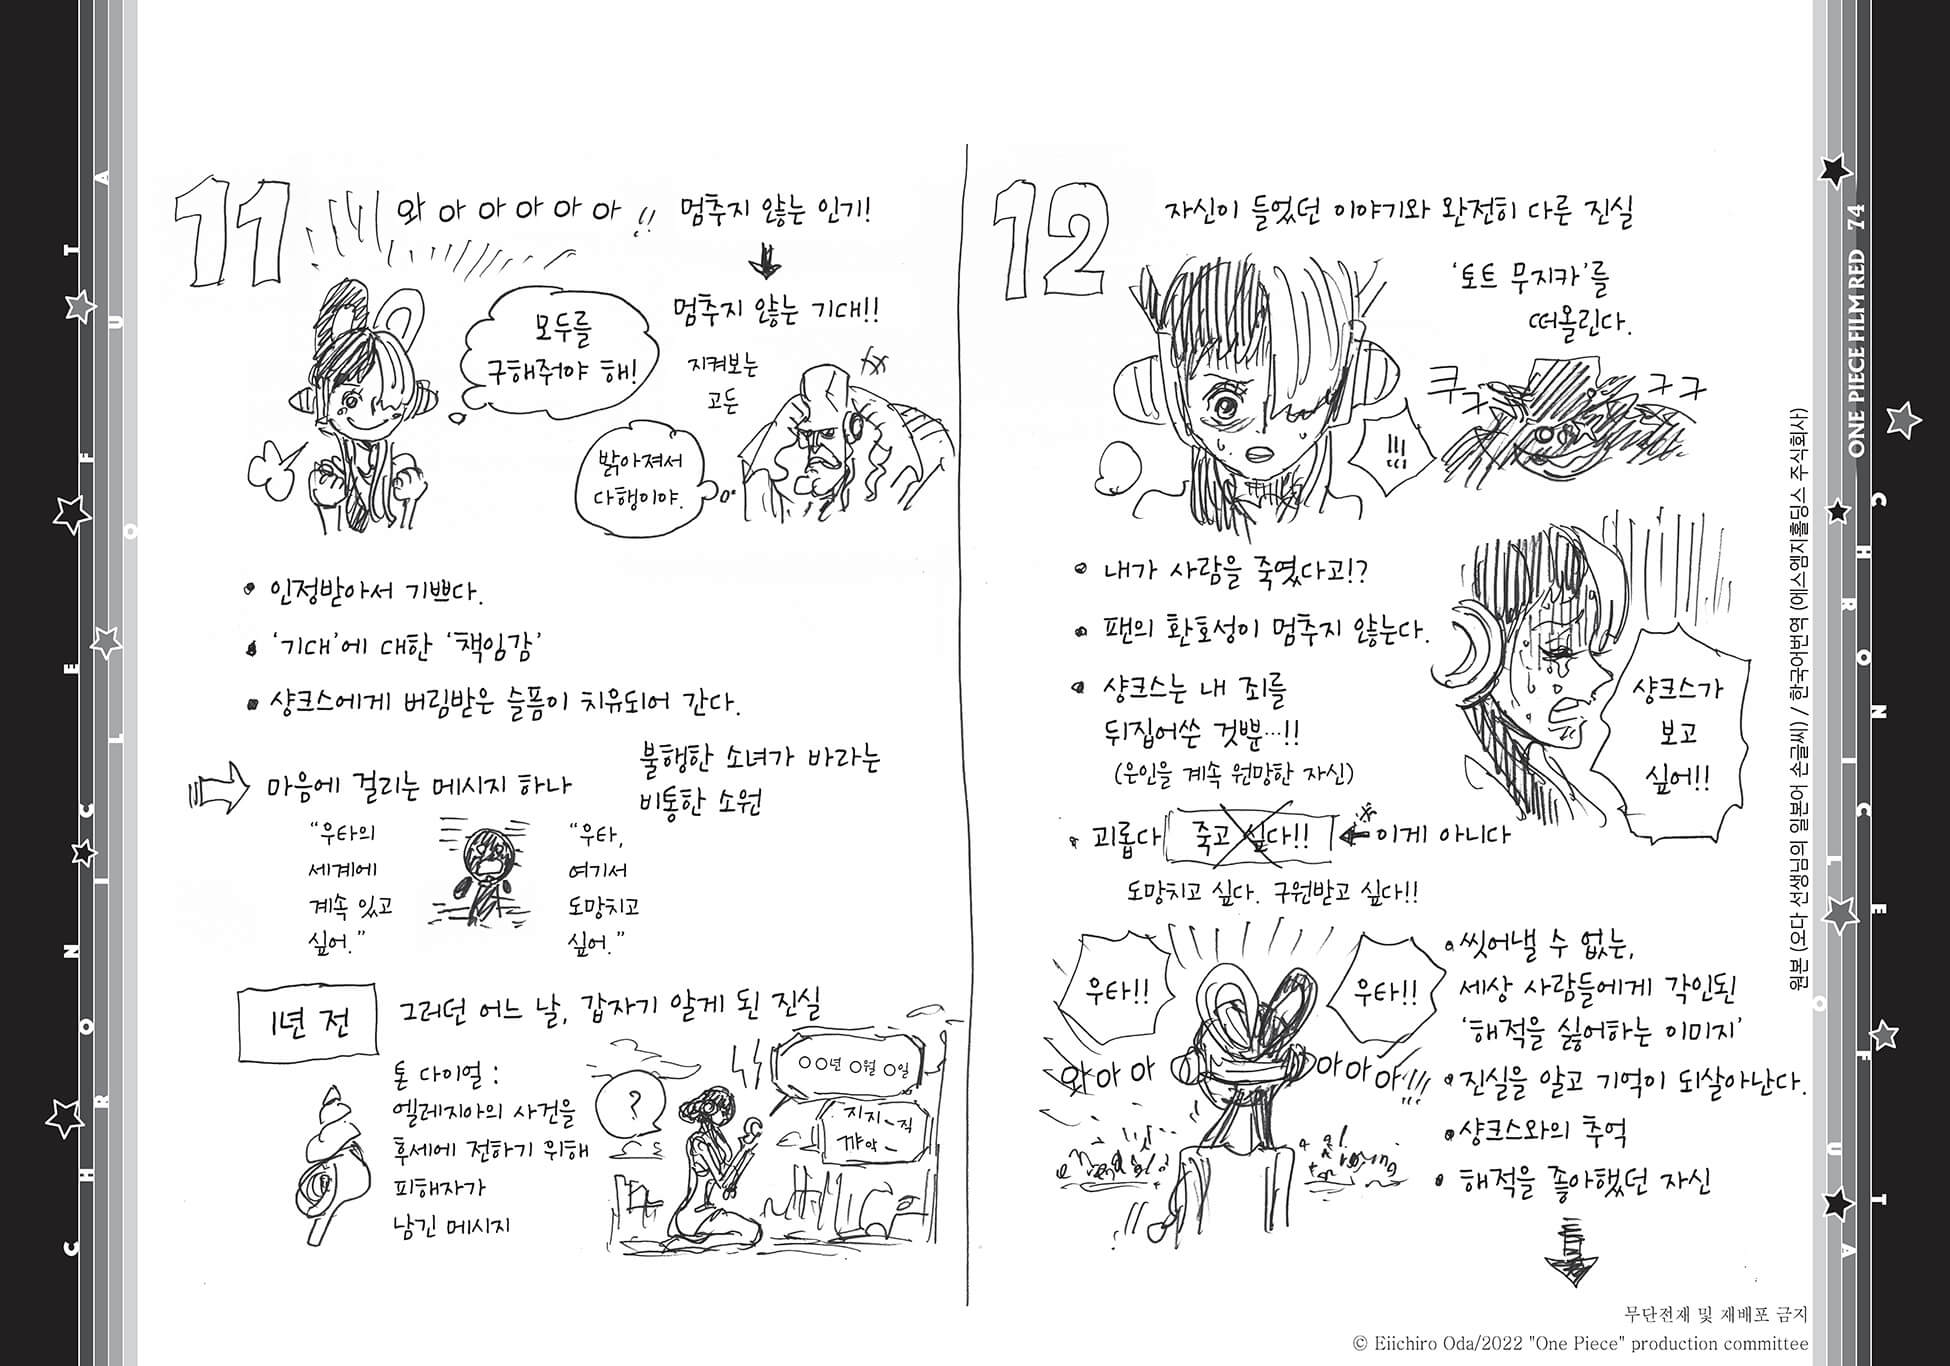 11
와 아 아 아 아 아 !!
멈추지 않는 인기!
멈추지 않는 기대!!
모두를
구해줘야 해!
지켜보는
고든
밝아져서
다행이야.
• 인정받아서 기쁘다.
• ‘기대’에 대한 ‘책임감’
• 샹크스에게 버림받은 슬픔이 치유되어 간다.
마음에 걸리는 메시지 하나
불행한 소녀가 바라는
비통한 소원
“우타의
세계에
계속 있고
싶어.”
“우타,
여기서
도망치고
싶어.”
1년 전
그러던 어느 날, 갑자기 알게 된 진실
톤 다이얼 :
엘레지아의 사건을
후세에 전하기 위해
피해자가
남긴 메시지
?
○○년 ○월 ○일
지지~직
꺄악~
12
자신이 들었던 이야기와 완전히 다른 진실
‘토트 무지카’를
떠올린다.
!!!
쿠구
구구
• 내가 사람을 죽였다고!?
• 팬의 환호성이 멈추지 않는다.
• 샹크스는 내 죄를
뒤집어쓴 것뿐…!!
(은인을 계속 원망한 자신)
샹크스가
보고
싶어!!
• 괴롭다 죽고 싶다!! 이게 아니다
도망치고 싶다. 구원받고 싶다!!
우타!!
우타!!
와아아
아아아!!!
• 씻어낼 수 없는,
세상 사람들에게 각인된
‘해적을 싫어하는 이미지’
• 진실을 알고 기억이 되살아난다.
• 샹크스와의 추억
• 해적을 좋아했던 자신
CHRONICLE OF UTA
CHRONICLE OF UTA
ONE PIECE FILM RED 74
원본 (오다 선생님의 일본어 손글씨) / 한국어번역 (에스엠지홀딩스 주식회사)
무단전재 및 재배포 금지
© Eiichiro Oda/2022 "One Piece" production committee